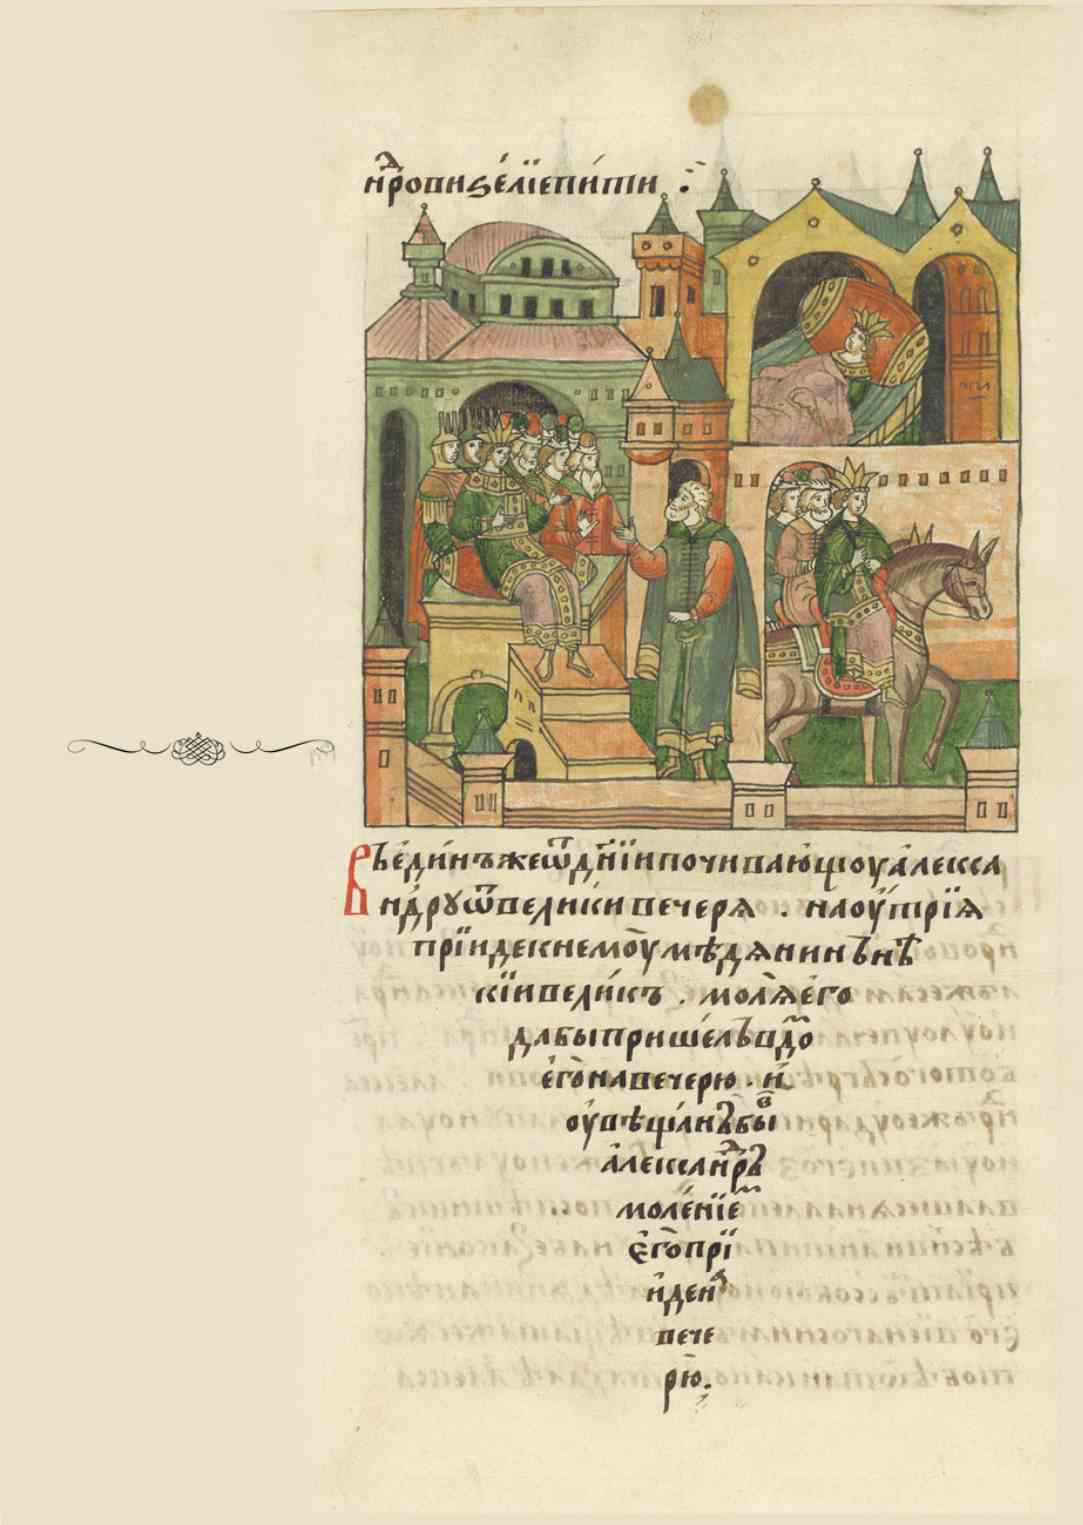 нд҃ро пи ѕе́лїе пи́ти :
Въ еди́нъ же ѿ дн҃їи почива́ющоу а́лекса
ндрꙋ ѿ вели́ки вечеря . на оу́трїя
прїиде к немоу мѣдянинъ нѣ
кїи вели́къ . моля́ его̀
дабы прише́лъ в до҃
его̀ на вечерю . и
оувѣща́нъ бы в
а́леѯанд҃ръ
моле́нїе м
его̀ прїи
иде н
вече
рю̀ .